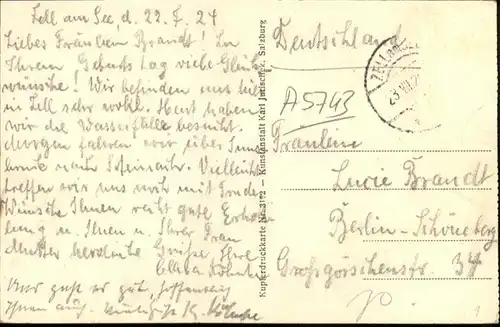 Zell am See, d. 22. 7. 24
Liebes Fräulein Brandt! Zu
Ihrem Geburtstag viele Glück-
wünsche! Wir befinden uns hier
in Zell sehr wohl. Heut haben
wir die Wasserfälle besucht.
Morgen fahren wir über
nach Vielleicht
treffen wir uns noch mit
Wünsche Ihnen recht gute Erho-
lung u. Ihnen u. Ihrer Frau
Mutter herzliche Grüße, Ihre
geht es gut, hoffentlich
Ihnen auch.
Kupferdruckkarte Nr. 3172 – Kunstanstalt Karl Jurischek, Salzburg
Deutschland
ZELL am SEE
A5743
Fräulein
Lucie Brandt
Berlin-Schöneberg
Großgörschenstr. 34